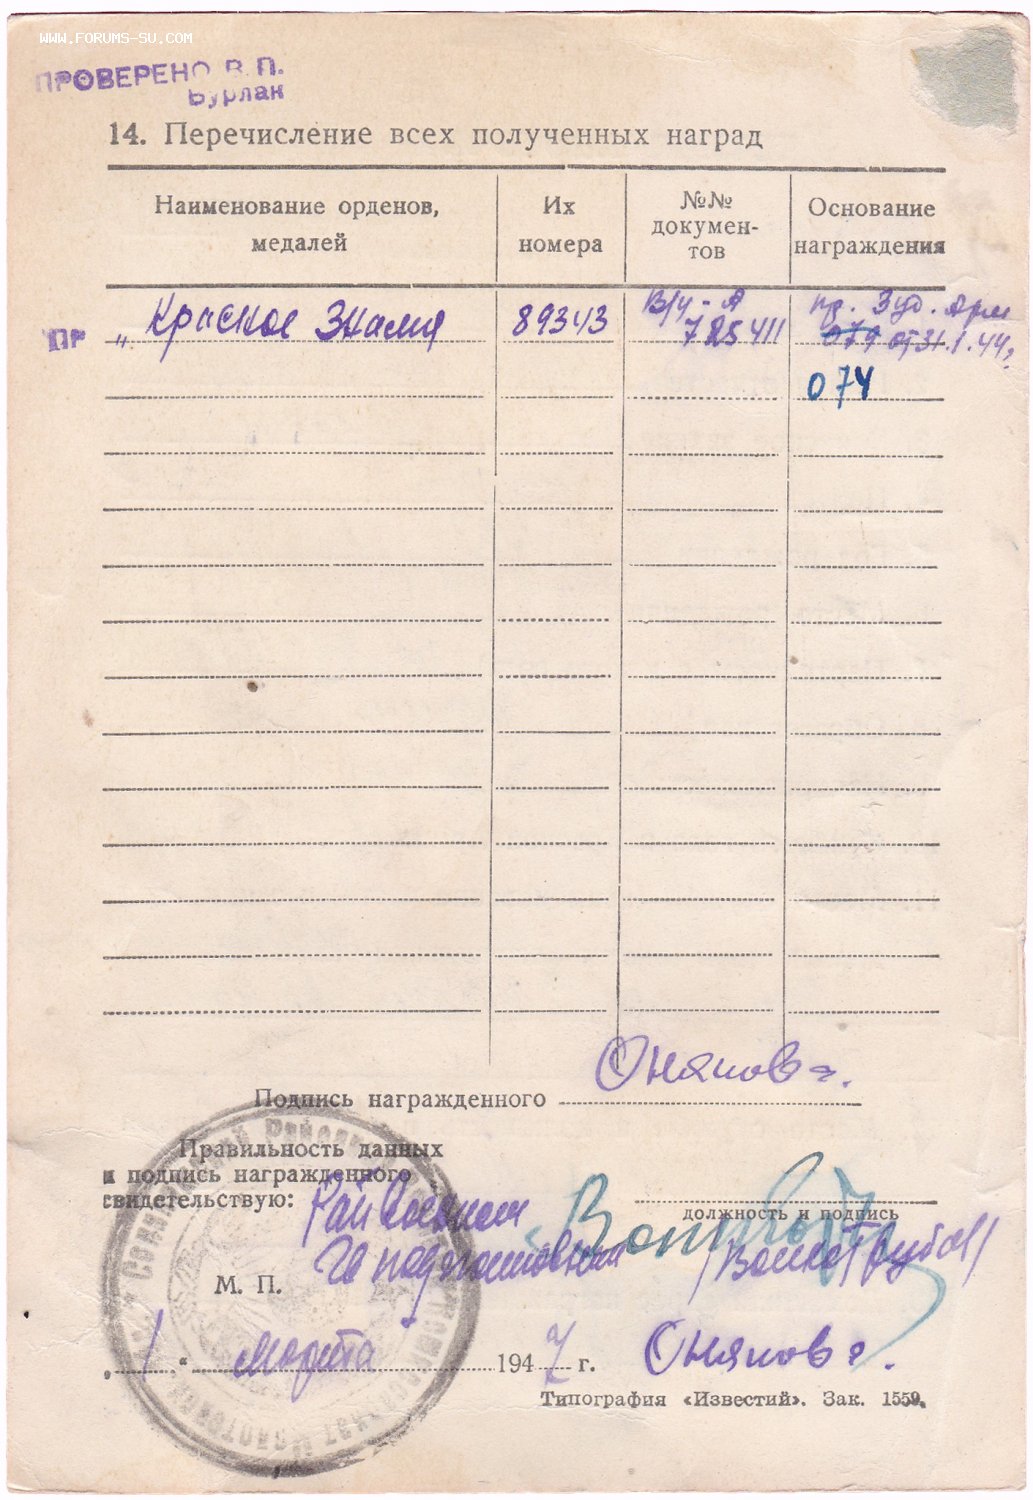 WWW.FORUMS-SU.COM
ПРОВЕРЕНО В. П.
Бурлан
14. Перечисление всех полученных наград
Наименование орденов, медалей
Их номера
№№ докумен-тов
Основание награждения
ПР
„ Красное Знамя 89343 В/ч - А 785411 пр. 3 уд. Арм
079 от 31.1.44,
074
Подпись награжденного Оняпова.
Правильность данных
и подпись награжденного
свидетельствую:
Райвоенком
должность и подпись
М. П.
1 " марта 1947 г. Оняпова.
Типография «Известий». Зак. 1559.